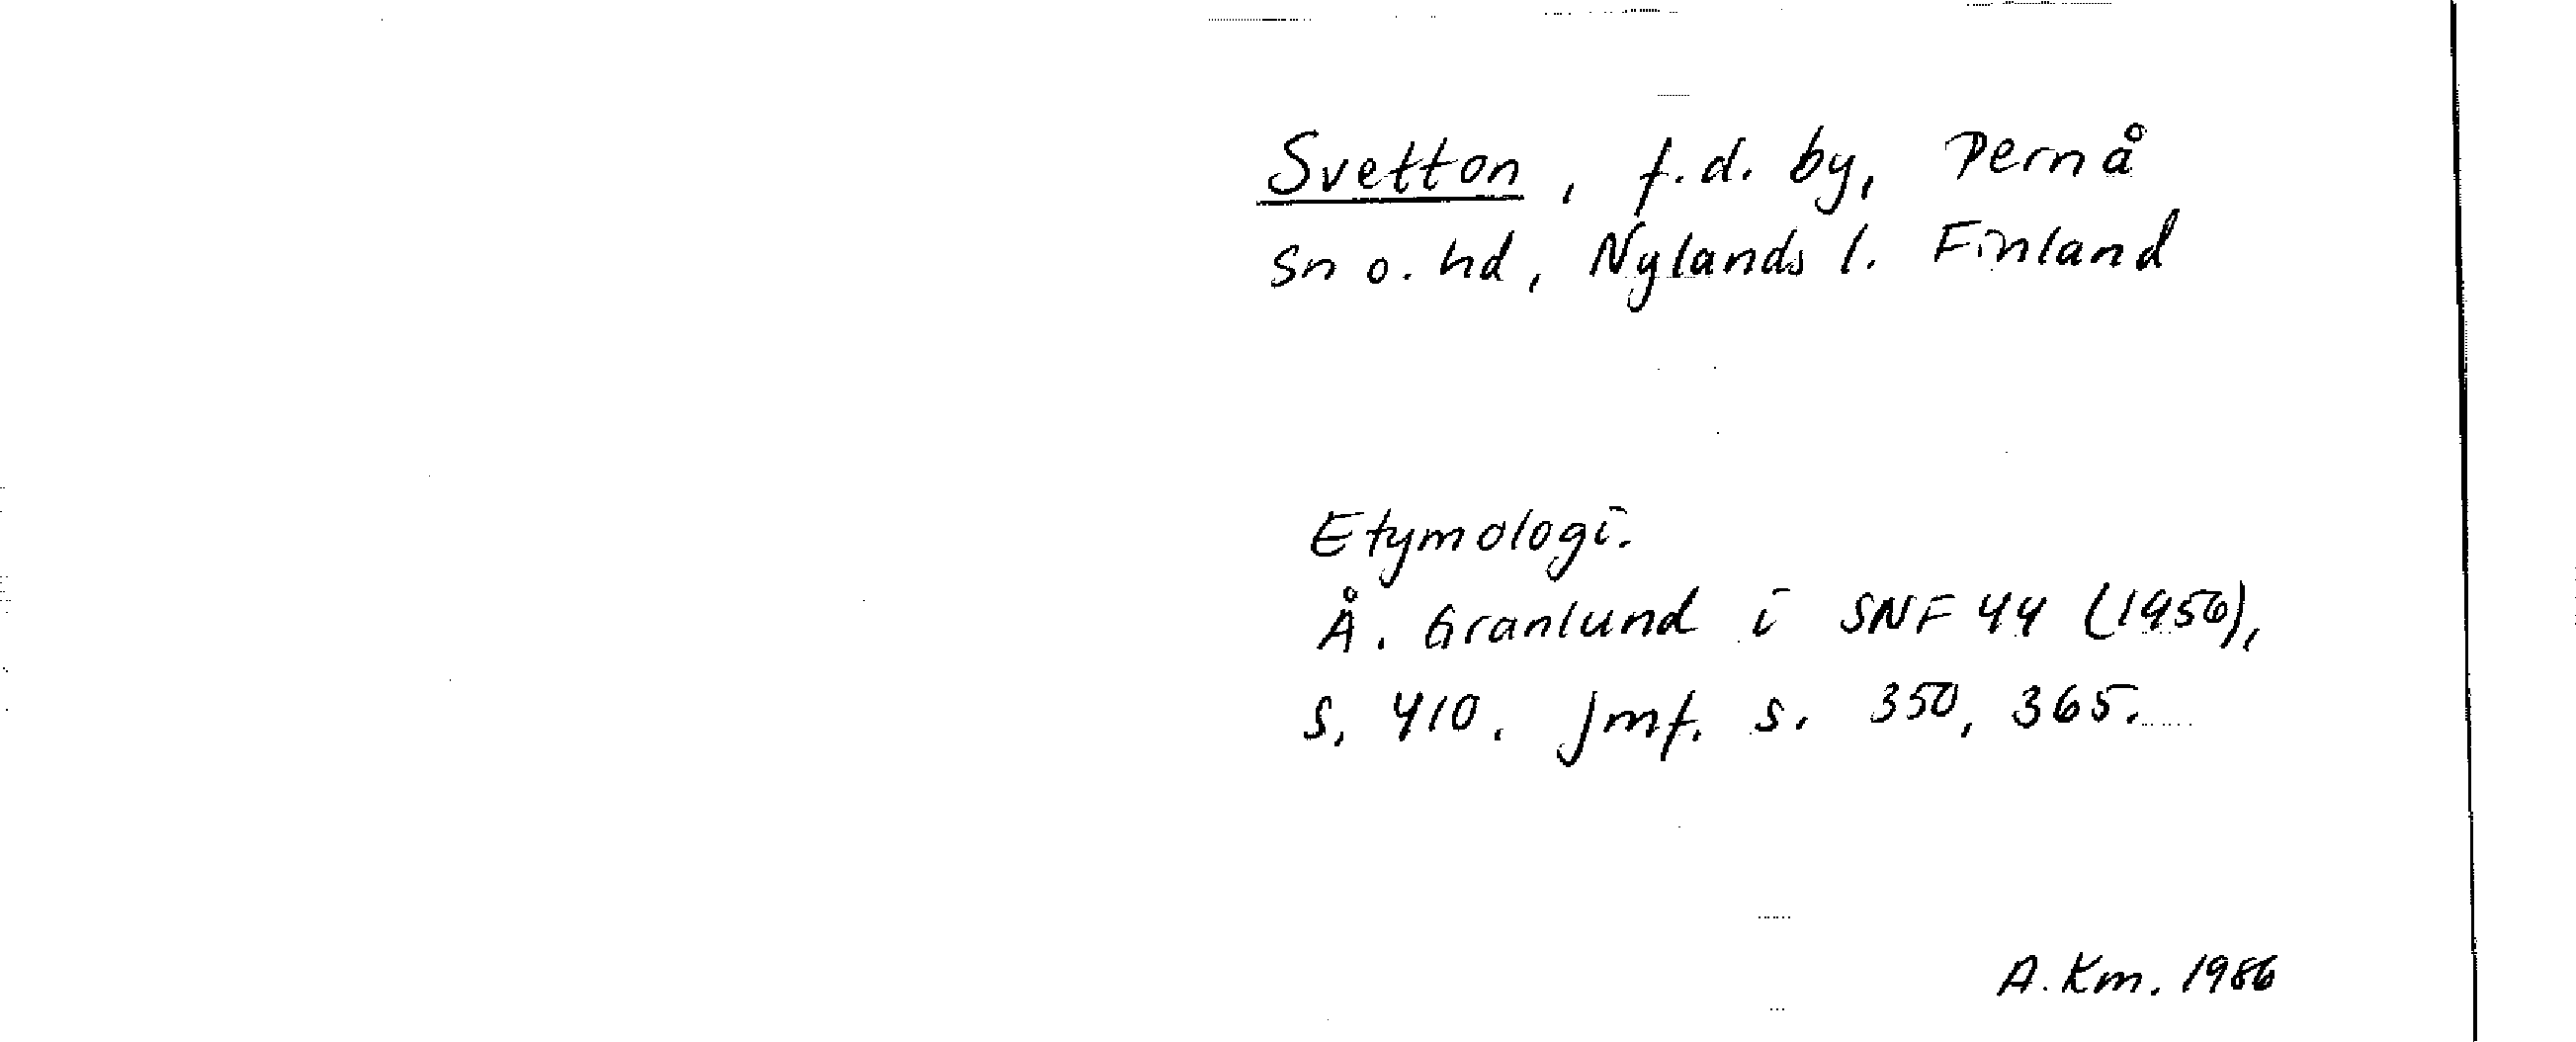 Svetton, f.d. by, Pernå
sn o. hd, Nylands l. Finland
Etymologi.
Å. Granlund i SNF 44 (1956),
s. 410. Jmf. s. 350, 365.
A. Km. 1986